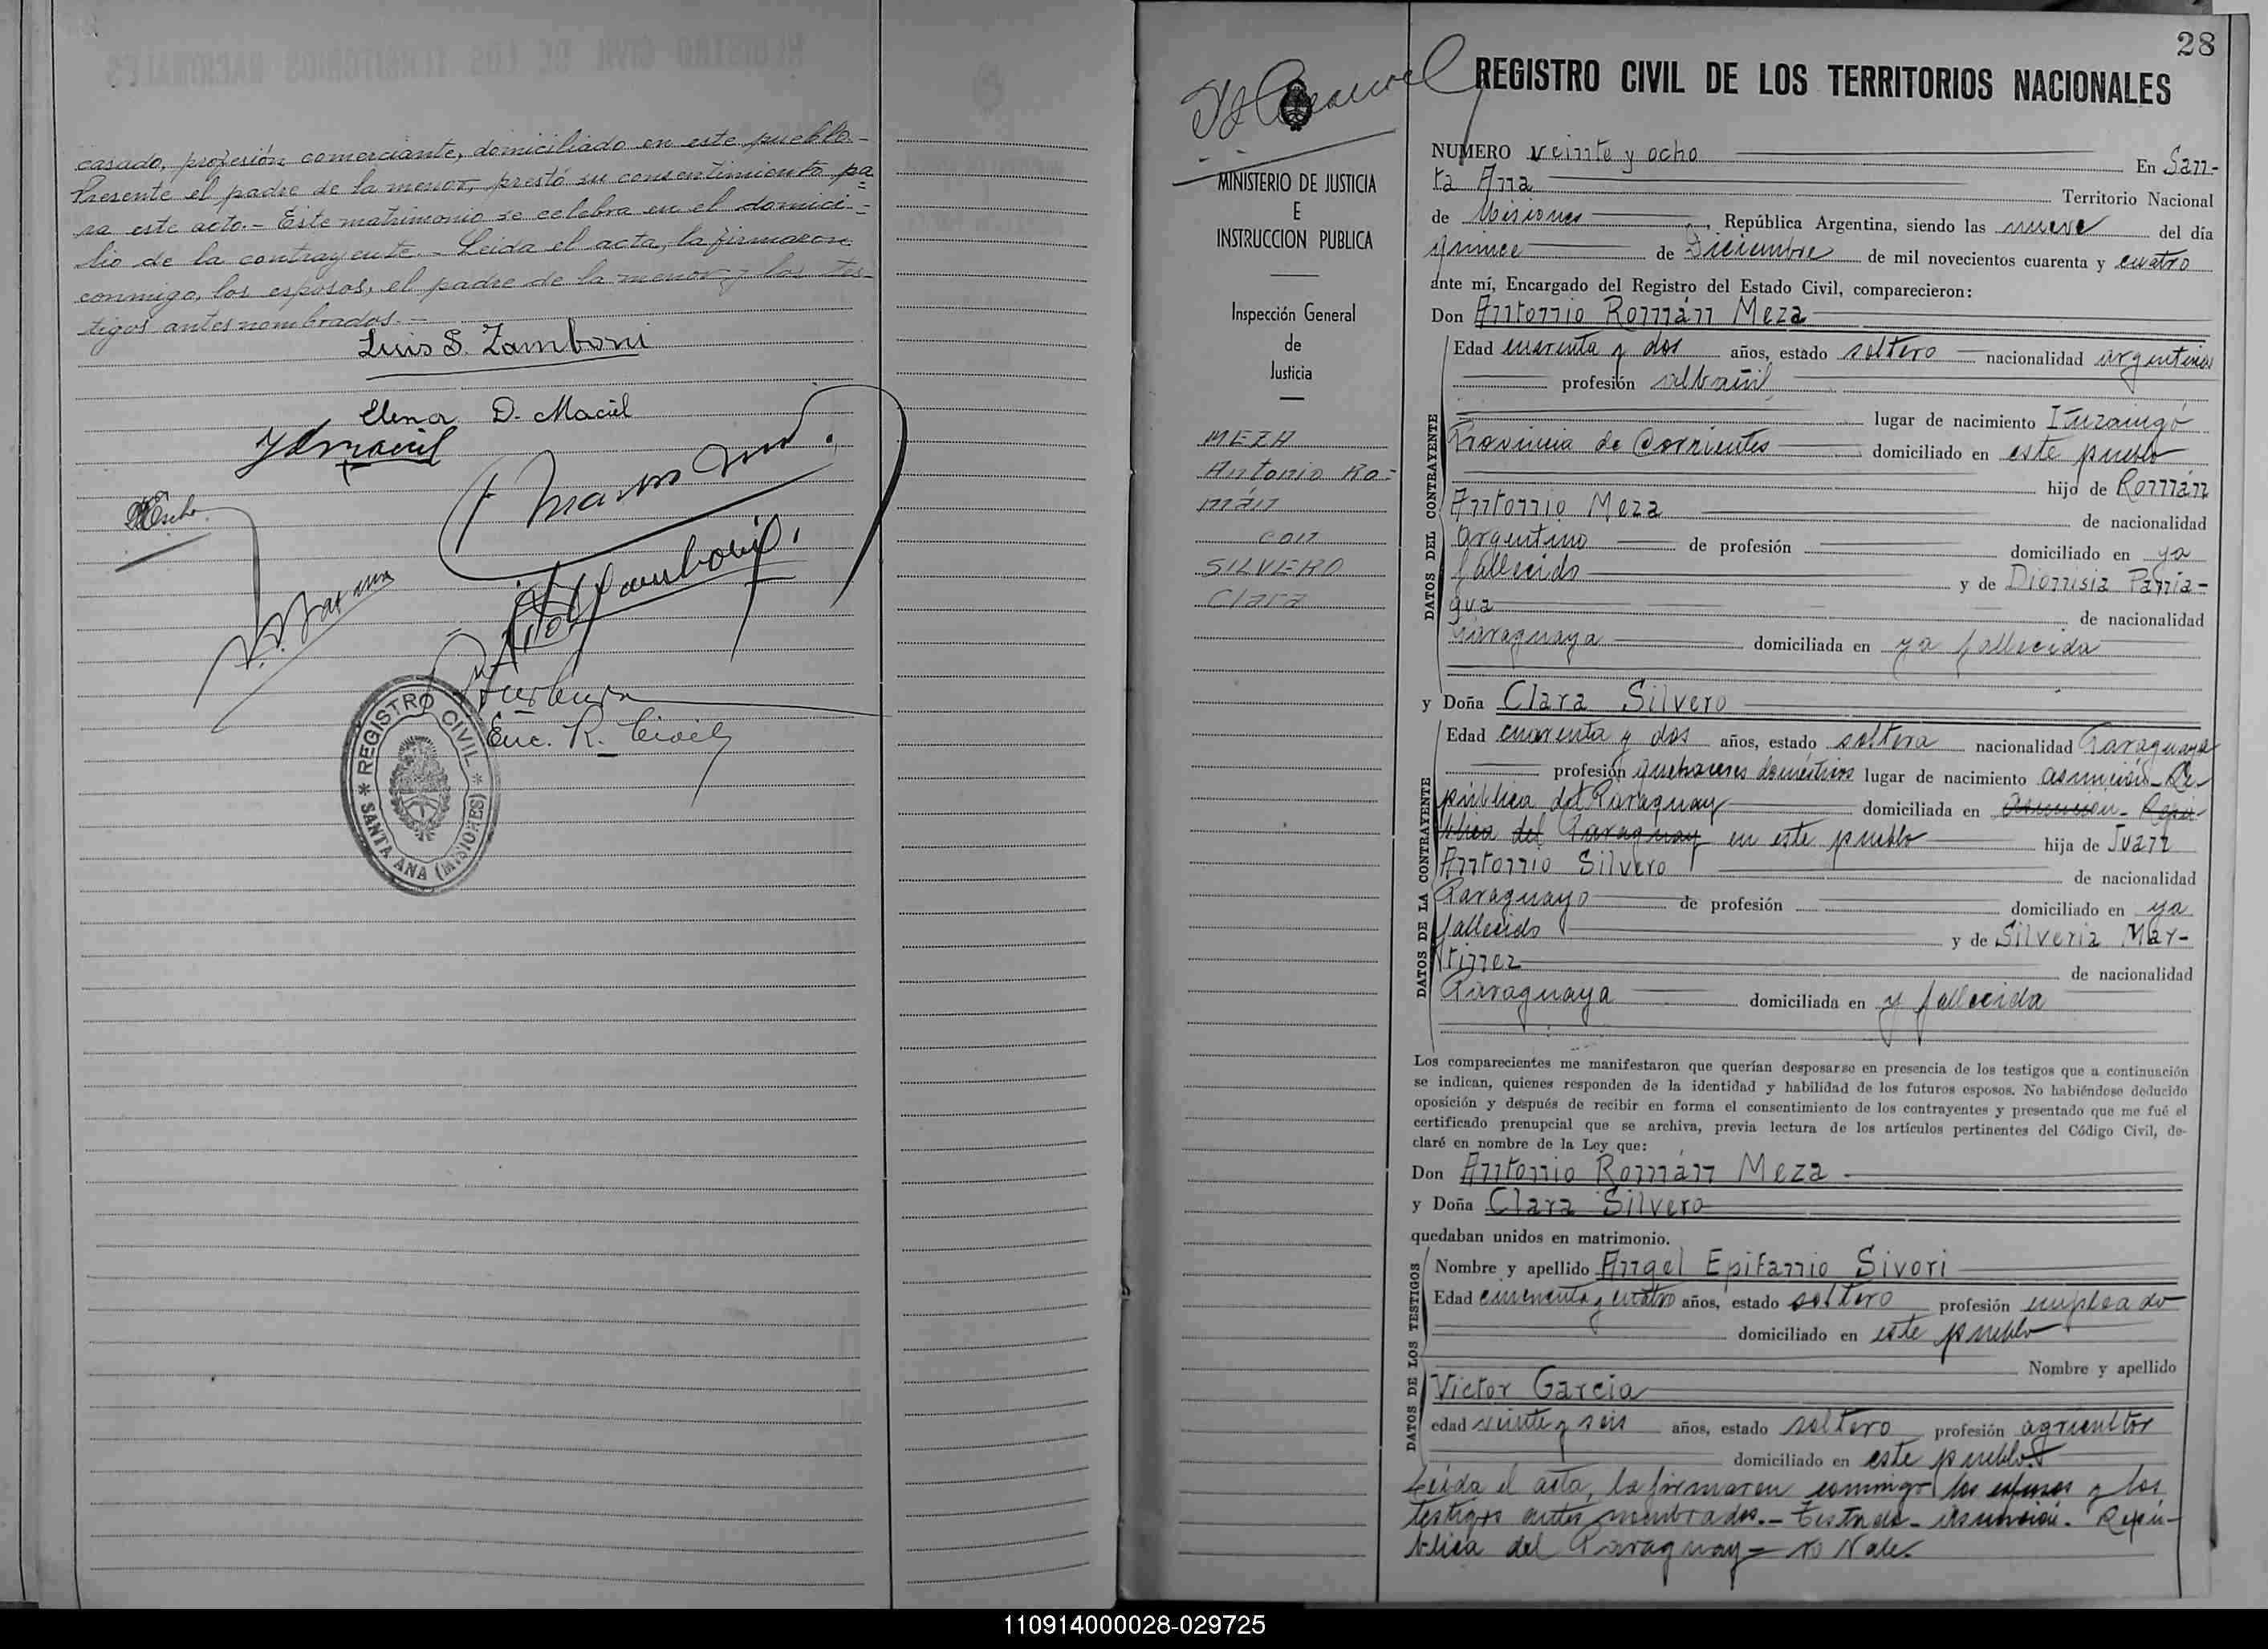 casado, profesión comerciante, domiciliado en este pueblo.-
Presente el padre de la menor, prestó su consentimiento pa=
ra este acto.- Este matrimonio se celebra en el domici-
lio de la contrayente.- Leida el acta, la firmaron
conmigo, los esposos, el padre de la menor y los tes-
tigos antes nombrados.-
Luis S. Zamboni
Elena D. Maciel
Enc. R. Civil
* REGISTRO CIVIL *
SANTA ANA (MISIONES)
28
REGISTRO CIVIL DE LOS TERRITORIOS NACIONALES
MINISTERIO DE JUSTICIA
E
INSTRUCCION PUBLICA
Inspección General
de
Justicia
MEZA
Antonio Ro=
mán
con
SILVERO
Clara
NUMERO veinte y ocho En San-
ta Ana Territorio Nacional
de Misiones, República Argentina, siendo las nueve del día
quince de Diciembre de mil novecientos cuarenta y cuatro
ante mí, Encargado del Registro del Estado Civil, comparecieron:
Don Antonio Román Meza
DATOS DEL CONTRAYENTE
Edad cuarenta y dos años, estado soltero nacionalidad argentino
profesión albañil
lugar de nacimiento Ituzaingó
Provincia de Corrientes domiciliado en este pueblo
hijo de Román
Antonio Meza de nacionalidad
Argentino de profesión domiciliado en ya
fallecido y de Dionisia Parria-
gua de nacionalidad
Paraguaya domiciliada en ya fallecida
y Doña Clara Silvero
DATOS DE LA CONTRAYENTE
Edad cuarenta y dos años, estado soltera nacionalidad Paraguaya
profesión quehaceres domésticos lugar de nacimiento asunción-Re-
pública del Paraguay domiciliada en Asunción- Repú-
blica del Paraguay en este pueblo hija de Juan
Antonio Silvero de nacionalidad
Paraguayo de profesión domiciliado en ya
fallecido y de Silveria Mar-
tinez de nacionalidad
Paraguaya domiciliada en y fallecida
Los comparecientes me manifestaron que querían desposarse en presencia de los testigos que a continuación
se indican, quienes responden de la identidad y habilidad de los futuros esposos. No habiéndose deducido
oposición y después de recibir en forma el consentimiento de los contrayentes y presentado que me fué el
certificado prenupcial que se archiva, previa lectura de los artículos pertinentes del Código Civil, de-
claré en nombre de la Ley que:
Don Antonio Román Meza
y Doña Clara Silvero
quedaban unidos en matrimonio.
DATOS DE LOS TESTIGOS
Nombre y apellido Angel Epifanio Sivori
Edad cincuenta y cuatro años, estado soltero profesión empleado
domiciliado en este pueblo.
Nombre y apellido
Victor Garcia
edad veinte y seis años, estado soltero profesión agricultor
domiciliado en este pueblo.
Leida el acta, la firmaron conmigo los esposos y los
testigos antes nombrados.- Testado- asunción. Repú-
blica del Paraguay- no vale.
110914000028-029725